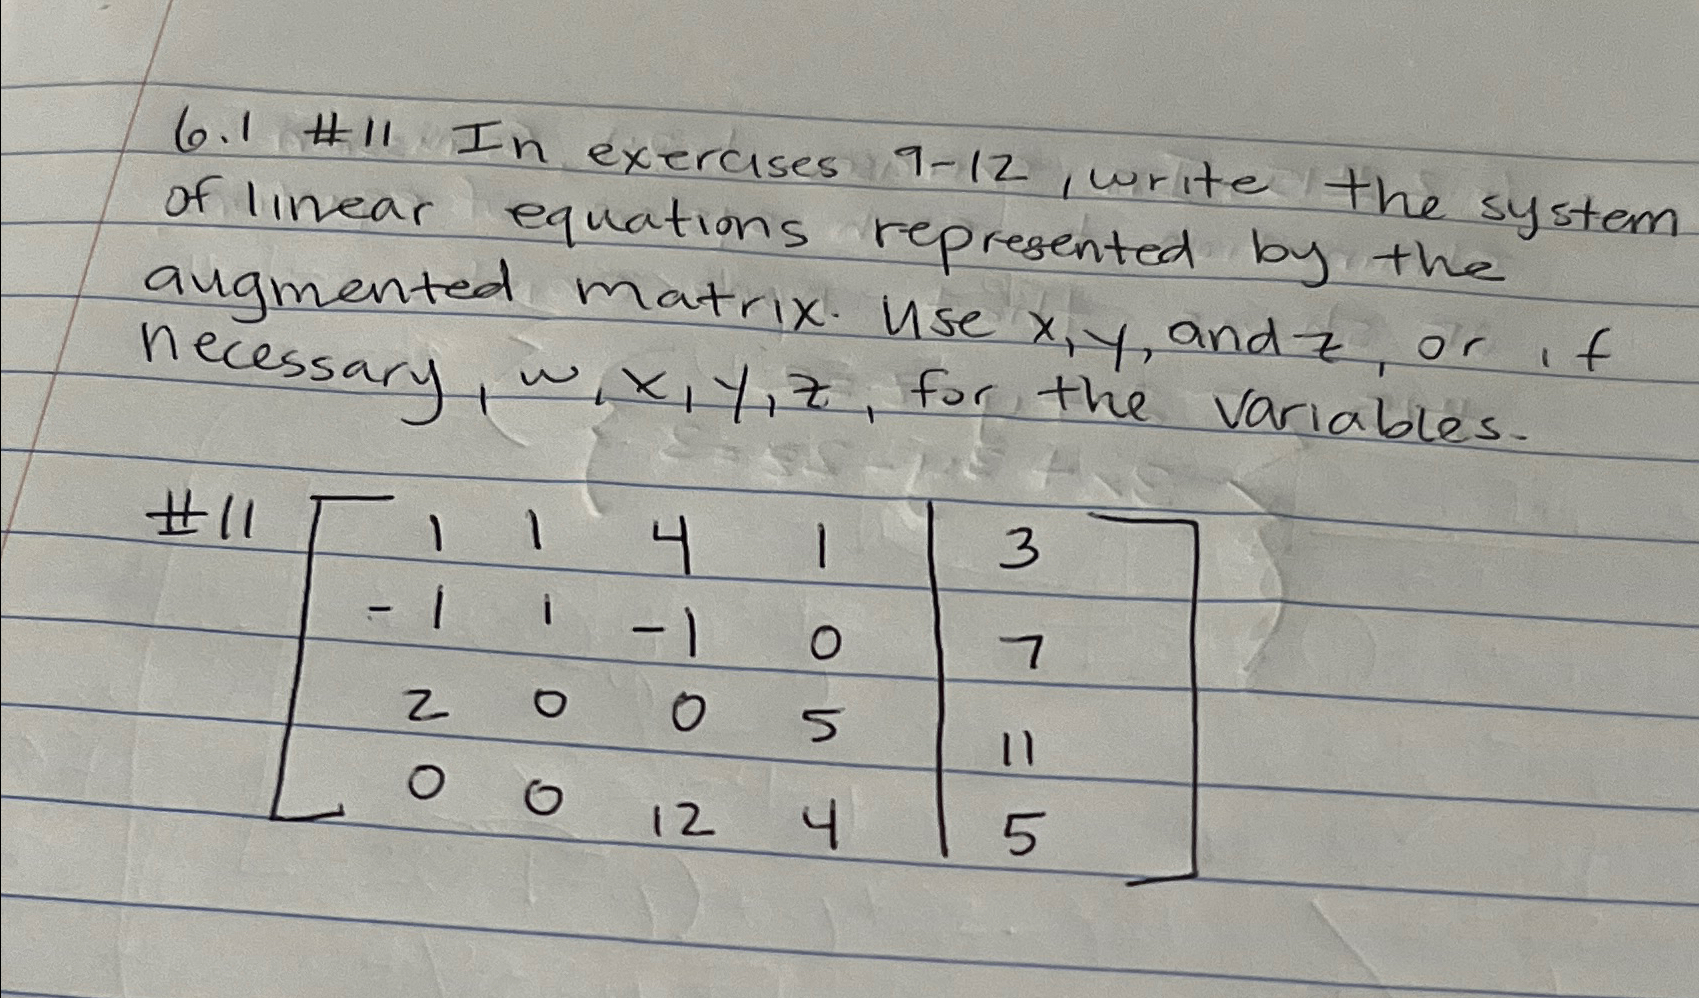 6.1 #11 In exercises 9-12, write the system
of linear equations represented by the
augmented matrix. Use x, y, and z, or if
necessary, w, x, y, z, for the variables.
#11
1 1 4 1 | 3
-1 1 -1 0 | 7
2 0 0 5 | 11
0 0 12 4 | 5